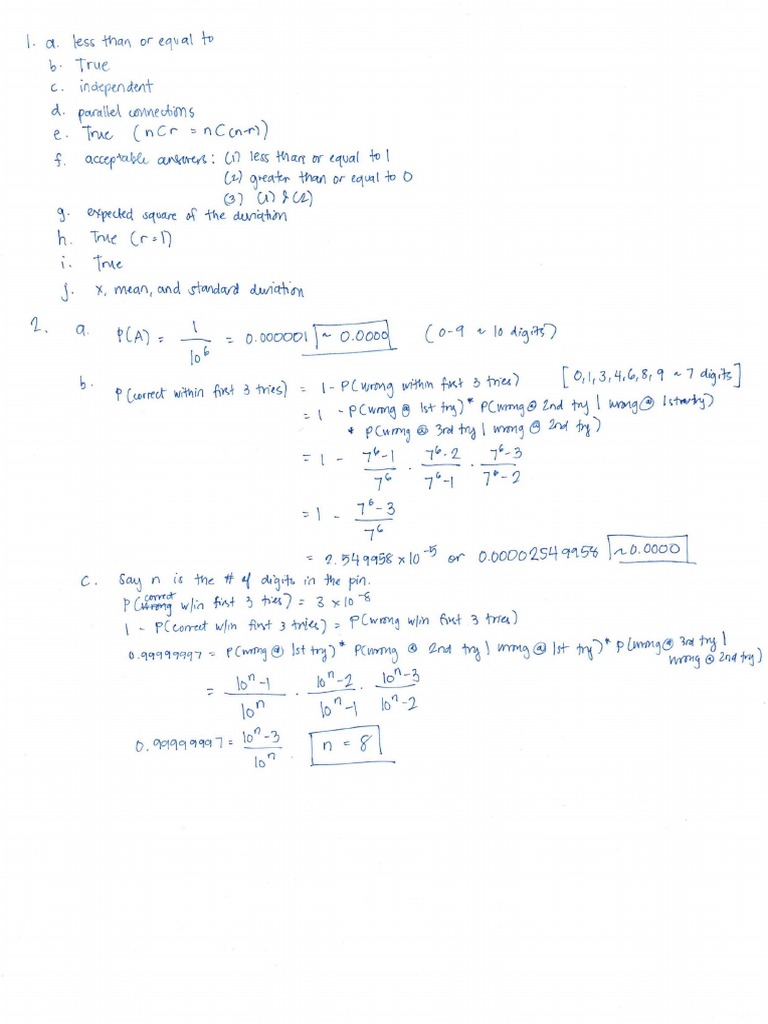 1. a. less than or equal to
b. True
c. independent
d. parallel connections
e. True (nCr = nC(n-r))
f. acceptable answers: (1) less than or equal to 1
(2) greater than or equal to 0
(3) (1) & (2)
g. expected square of the deviation
h. True (r=1)
i. True
j. x, mean, and standard deviation
2. a. P(A) = 1/10^6 = 0.000001 ~ 0.0000 (0-9 ~ 10 digits)
b. P(correct within first 3 tries) = 1 - P(wrong within first 3 tries) [0,1,3,4,6,8,9 ~ 7 digits]
= 1 - P(wrong @ 1st try) * P(wrong @ 2nd try | wrong @ 1st try)
* P(wrong @ 3rd try | wrong @ 2nd try)
= 1 - 7^6-1/7^6 · 7^6-2/7^6-1 · 7^6-3/7^6-2
= 1 - 7^6-3/7^6
= 2.549958 × 10^-5 or 0.00002549958 ~0.0000
c. Say n is the # of digits in the pin.
P(correct w/in first 3 tries) = 3 × 10^-8
1 - P(correct w/in first 3 tries) = P(wrong w/in first 3 tries)
0.99999997 = P(wrong @ 1st try) * P(wrong @ 2nd try | wrong @ 1st try) * P(wrong @ 3rd try |
wrong @ 2nd try)
= 10^n-1/10^n · 10^n-2/10^n-1 · 10^n-3/10^n-2
0.99999997 = 10^n-3/10^n n = 8